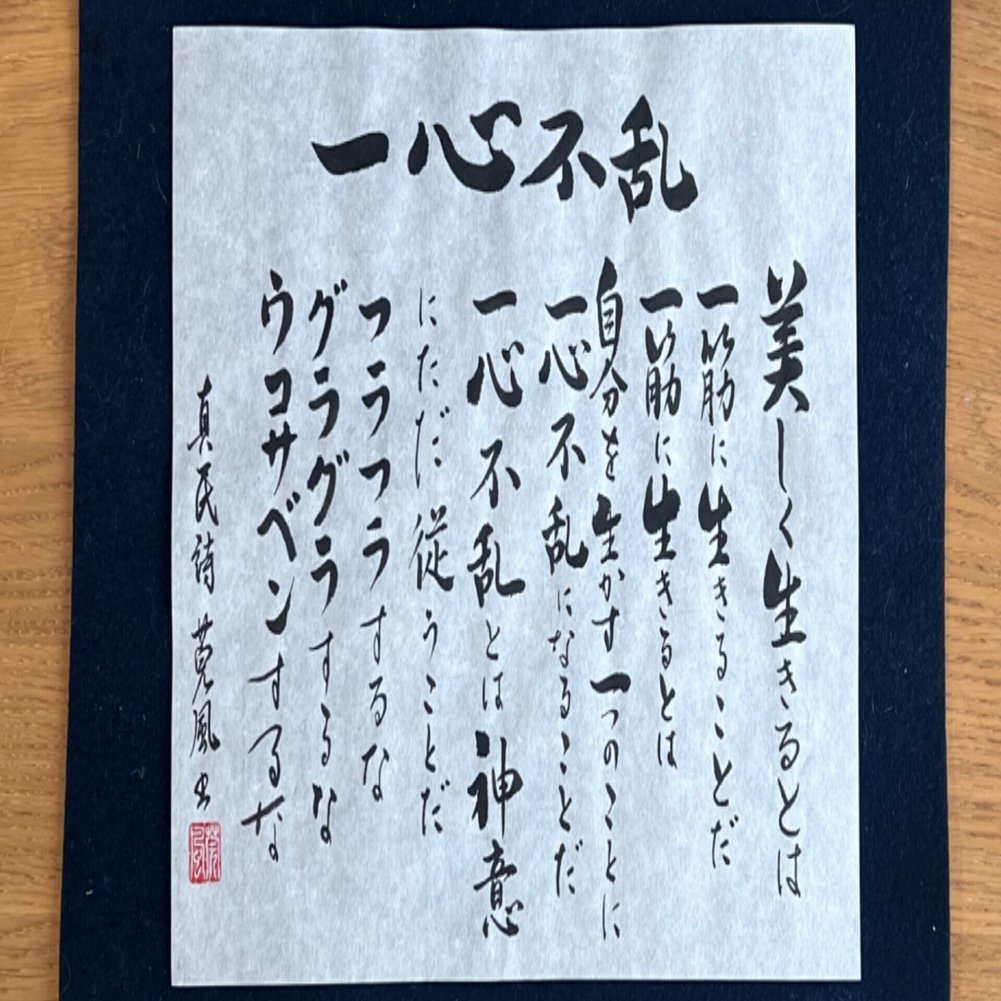 一心不乱
美しく生きるとは
一筋に生きることだ
一筋に生きるとは
自分を生かす一つのことに
一心不乱になることだ
一心不乱とは神意
にただだ従うことだ
フラフラするな
グラグラするな
ウコサベンするな
真民詩 風書